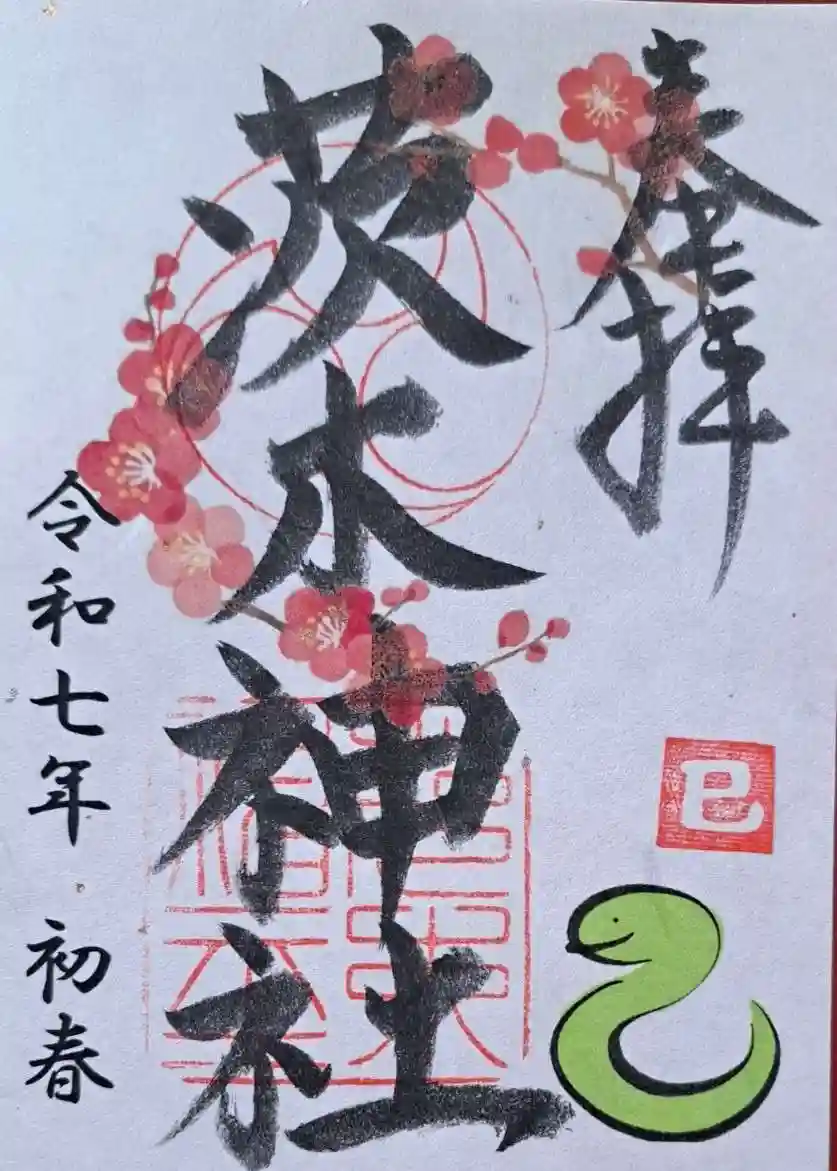 奉拝
茨水神社
令和七年 初春
巳